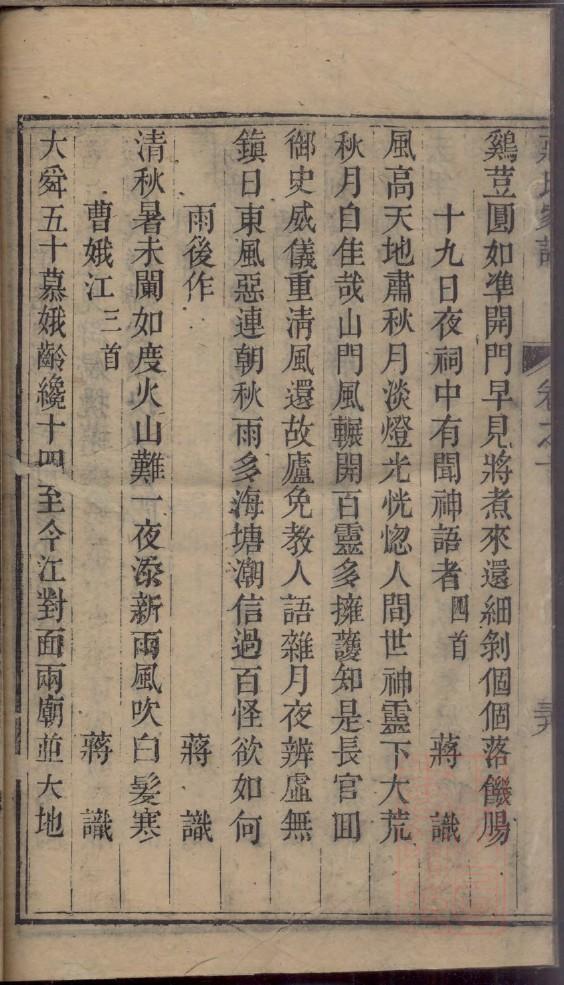 鷄荳圓如準開門早見將煮來還細剝個個落饑腸
十九日夜祠中有聞神語者 四首 蔣 識
風高天地肅秋月淡燈光恍惚人間世神靈下大荒
秋月自佳哉山門風輾開百靈多擁䕶知是長官囬
御史威儀重清風還故廬免教人語雜月夜辨虛無
鎮日東風惡連朝秋雨多海塘潮信過百怪欲如何
雨後作 蔣 識
清秋暑未闌如度火山難一夜添新雨風吹白髮寒
曹娥江 三首 蔣 識
大舜五十慕娥齡纔十四至今江對面兩廟並大地